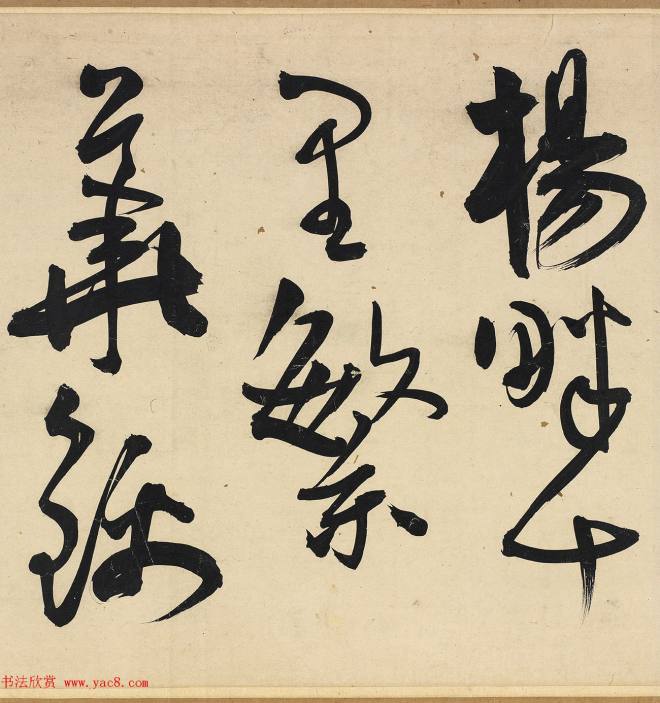 楊畔十
里繁
華
书法欣赏 www.yac8.com